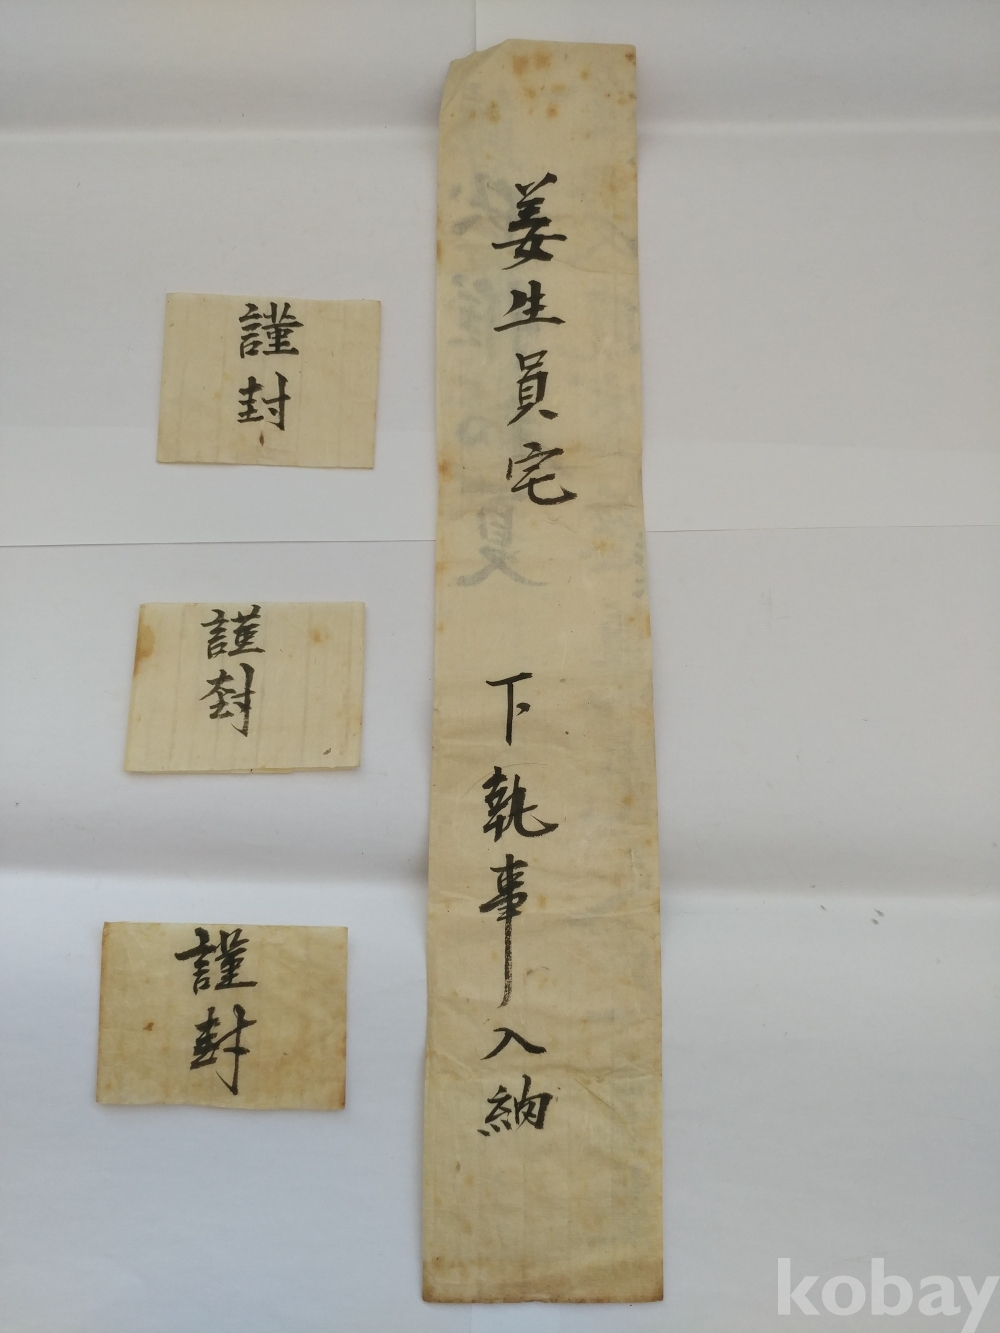 姜生員宅 下執事入納
謹封
謹封
謹封
kobay